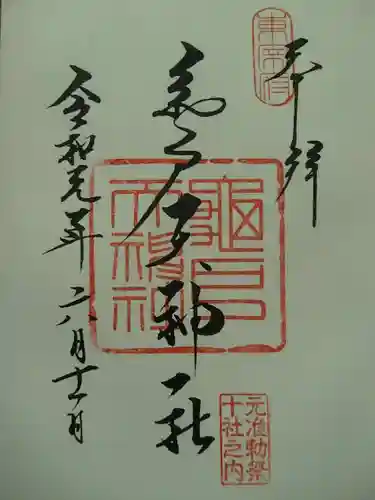 東宰府
奉拝
亀戸天神社
龜戸
天神社
元准勅祭
十社之内
令和元年八月十一日